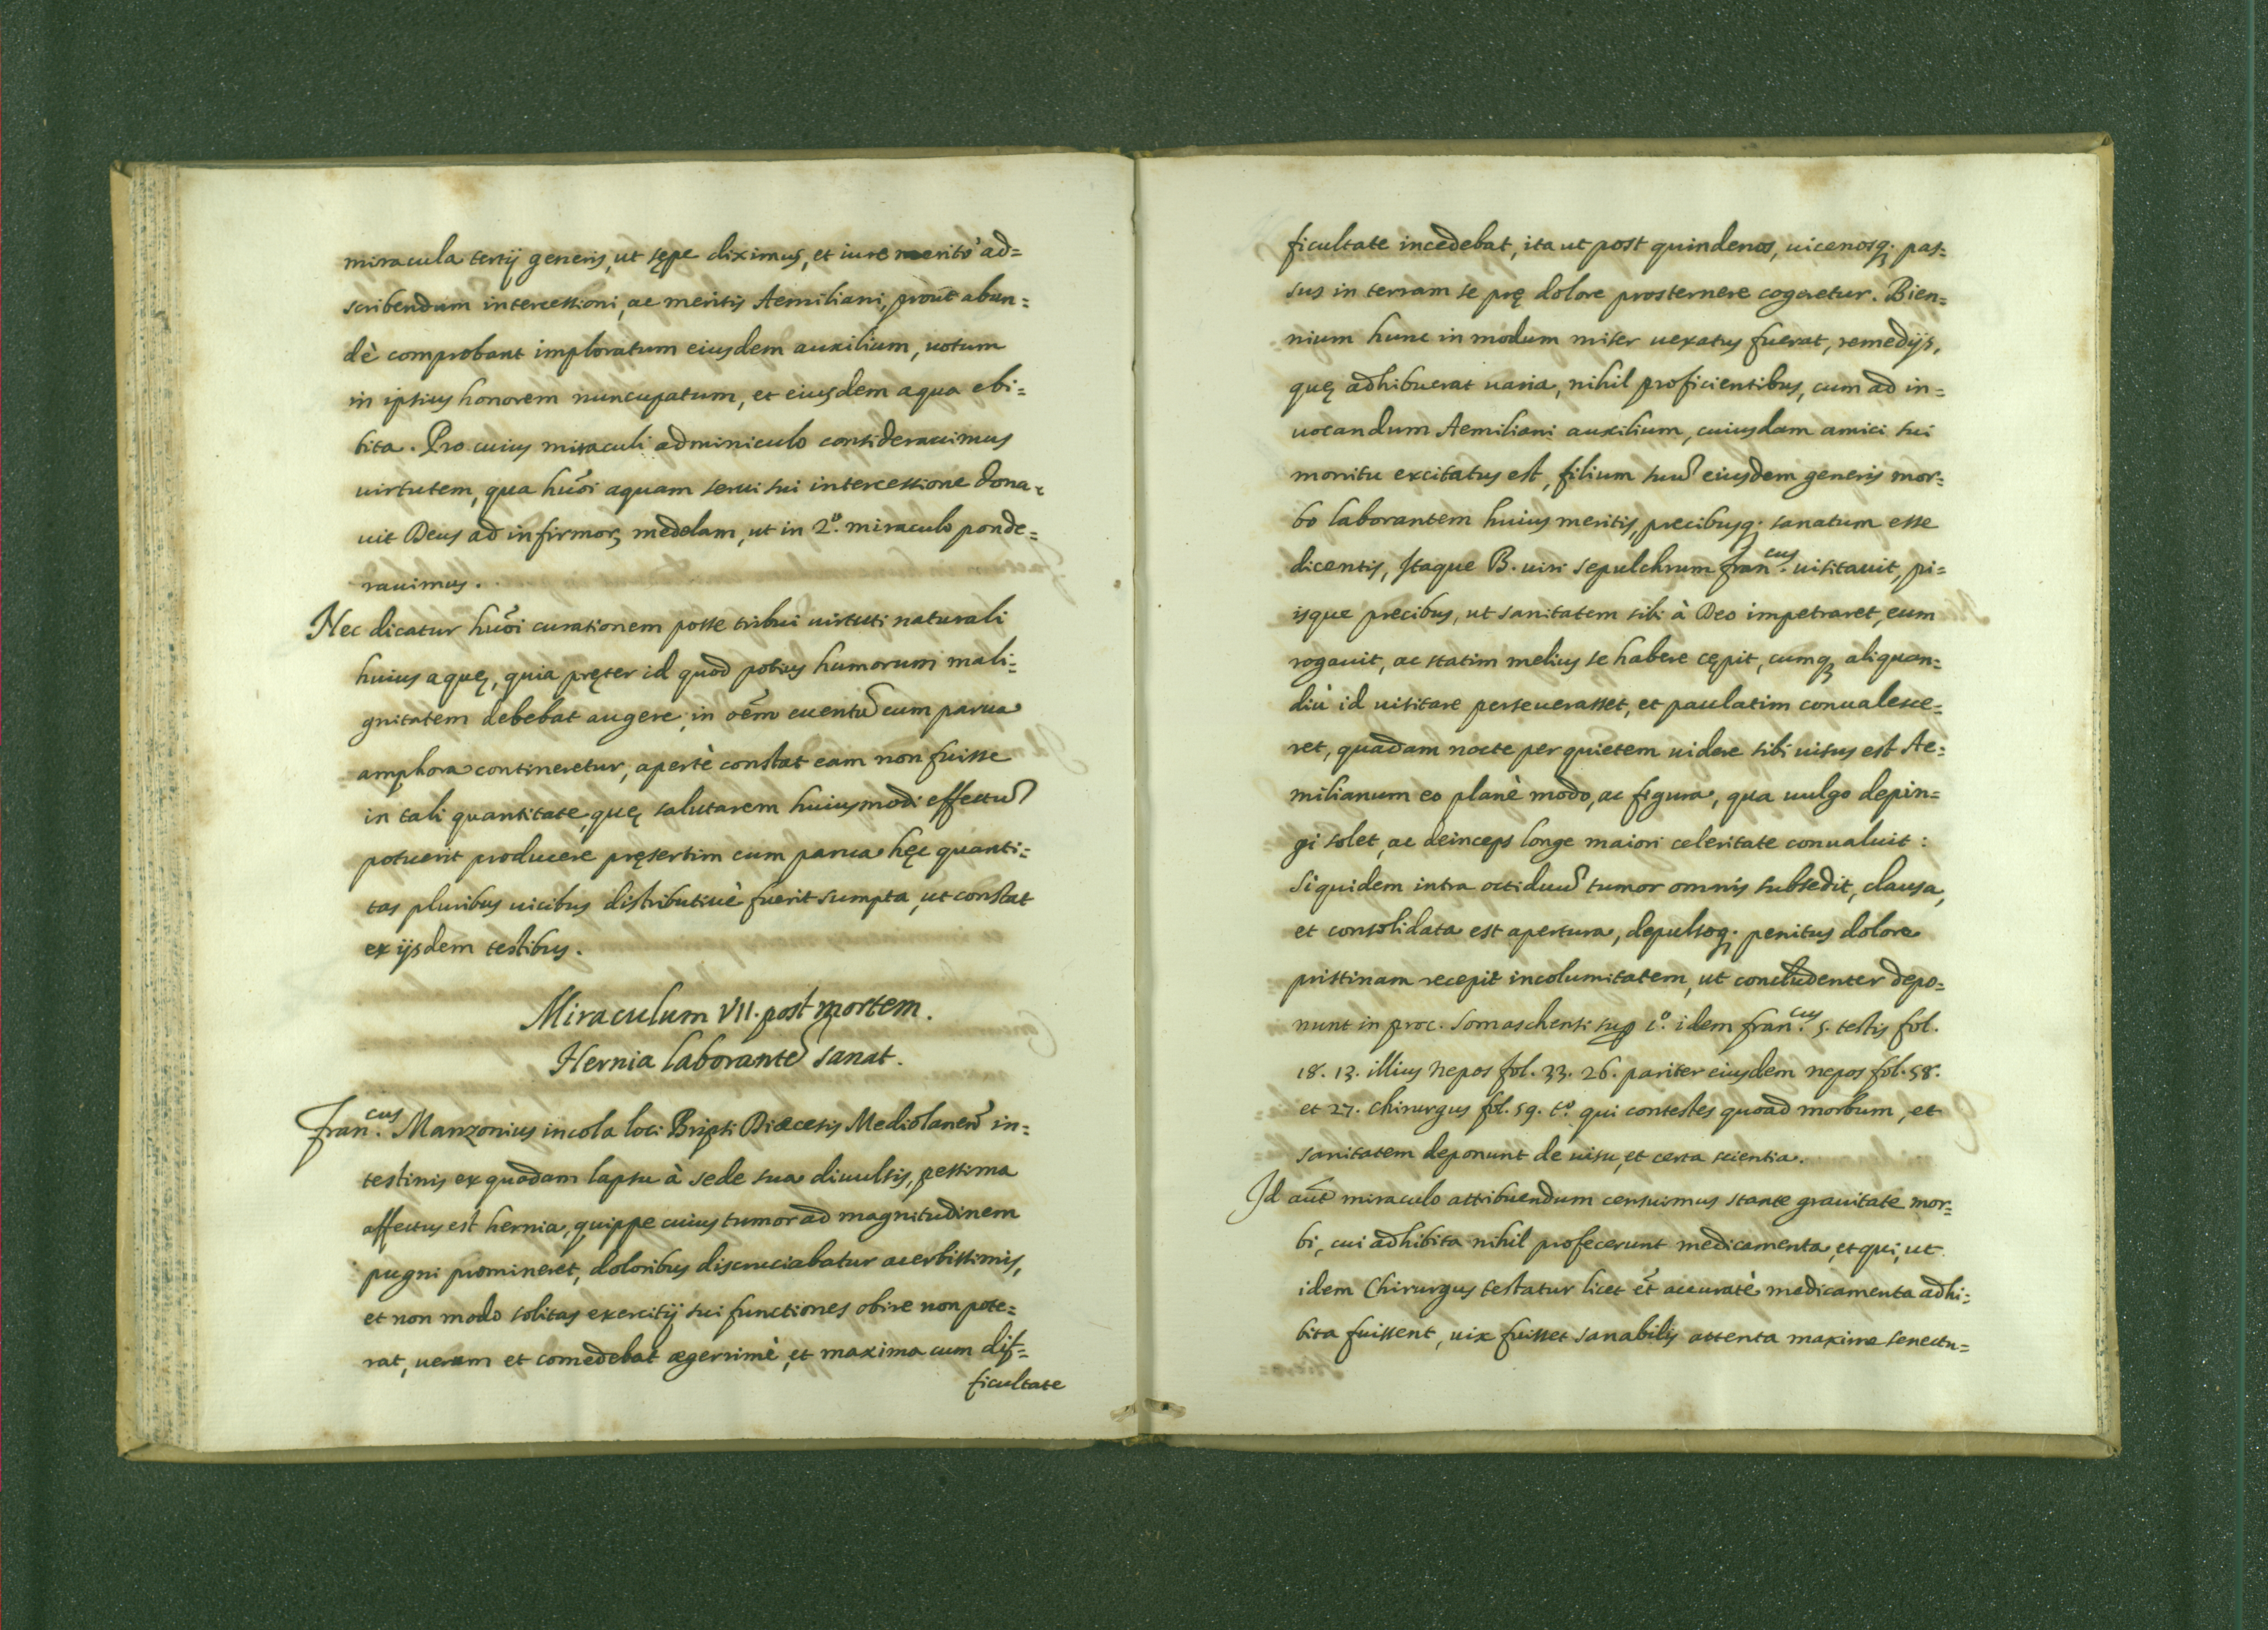 miracula tertij generis, ut sępe diximus, et iure meritò ad=
scribendum intercessioni, ac meritis Aemiliani, prout abun=
dè comprobant imploratum eiusdem auxilium, uotum
in ipsius honorem nuncupatum, et eiusdem aqua ebi=
bita. Pro cuius miraculi adminiculo considerauimus
uirtutem, qua huõi aquam serui sui intercessione dona=
uit Deus ad infirmorꝫ medelam, ut in 2.º miraculo ponde=
rauimus.
Nec dicatur huõi curationem posse tribui uirtuti naturali
huius aquę, quia pręter id quod potius humorum mali=
gnitatem debebat augere, in oẽm euentũ cum parua
amphora contineretur, apertè constat eam non fuisse
in tali quantitate, quę salutarem huiusmodi effectũ
potuerit producere pręsertim cum parua hęc quanti=
tas pluribus uicibus distributiuè fuerit sumpta, ut constat
ex ijsdem testibus.
Miraculum VII. post mortem.
Hernia laborantẽ sanat.
Fran.cus Manzonius incola loci Bripti Diœcesis Mediolaneñ in=
testinis ex quodam lapsu à sede sua diuulsis, pessima
affectus est hernia, quippe cuius tumor ad magnitudinem
pugni promineret, doloribus discruciabatur acerbissimis,
et non modo solitas exercitij sui functiones obire non pote=
rat, uerum et comedebat ægerrimè, et maxima cum dif=
ficultate
ficultate incedebat, ita ut post quindenos, uicenosq; pas=
sus in terram se prę dolore prosternere cogeretur. Bien=
nium hunc in modum miser uexatus fuerat, remedijs,
quę adhibuerat uaria, nihil proficientibus, cum ad in=
uocandum Aemiliani auxilium, cuiusdam amici sui
monitu excitatus est, filium suũ eiusdem generis mor=
bo laborantem huius meritis, precibusq; sanatum esse
dicentis, Itaque B. uiri sepulchrum Fran.cus uisitauit, pi=
isque precibus, ut sanitatem sibi à Deo impetraret, eum
rogauit, ac statim melius se habere cępit, cumq; aliquan=
diù id uisitare perseuerasset, et paulatim conualesce=
ret, quadam nocte per quietem uidere sibi uisus est Ae=
milianum eo planè modo, ac figura, qua uulgo depin=
gi solet, ac deinceps longe maiori celeritate conualuit:
Siquidem intra octiduũ tumor omnis subsedit, clausa,
et consolidata est apertura, depulsoq; penitus dolore
pristinam recepit incolumitatem, ut concludenter depo=
nunt in proc. Somaschensi sup. c.º idem Fran.cus 5. testis fol.
18. 13. illius nepos fol. 33. 26. pariter eiusdem nepos fol. 58.
et 27. Chirurgus fol. 59. t.º qui contestes quoad morbum, et
sanitatem deponunt de uisu, et certa scientia.
Id aut̃ miraculo attribuendum censuimus stante grauitate mor=
bi, cui adhibita nihil profecerunt medicamenta, et qui, ut
idem Chirurgus testatur licet et̃ accuratè medicamenta adhi=
bita fuissent, uix fuisset sanabilis attenta maxime senectu=